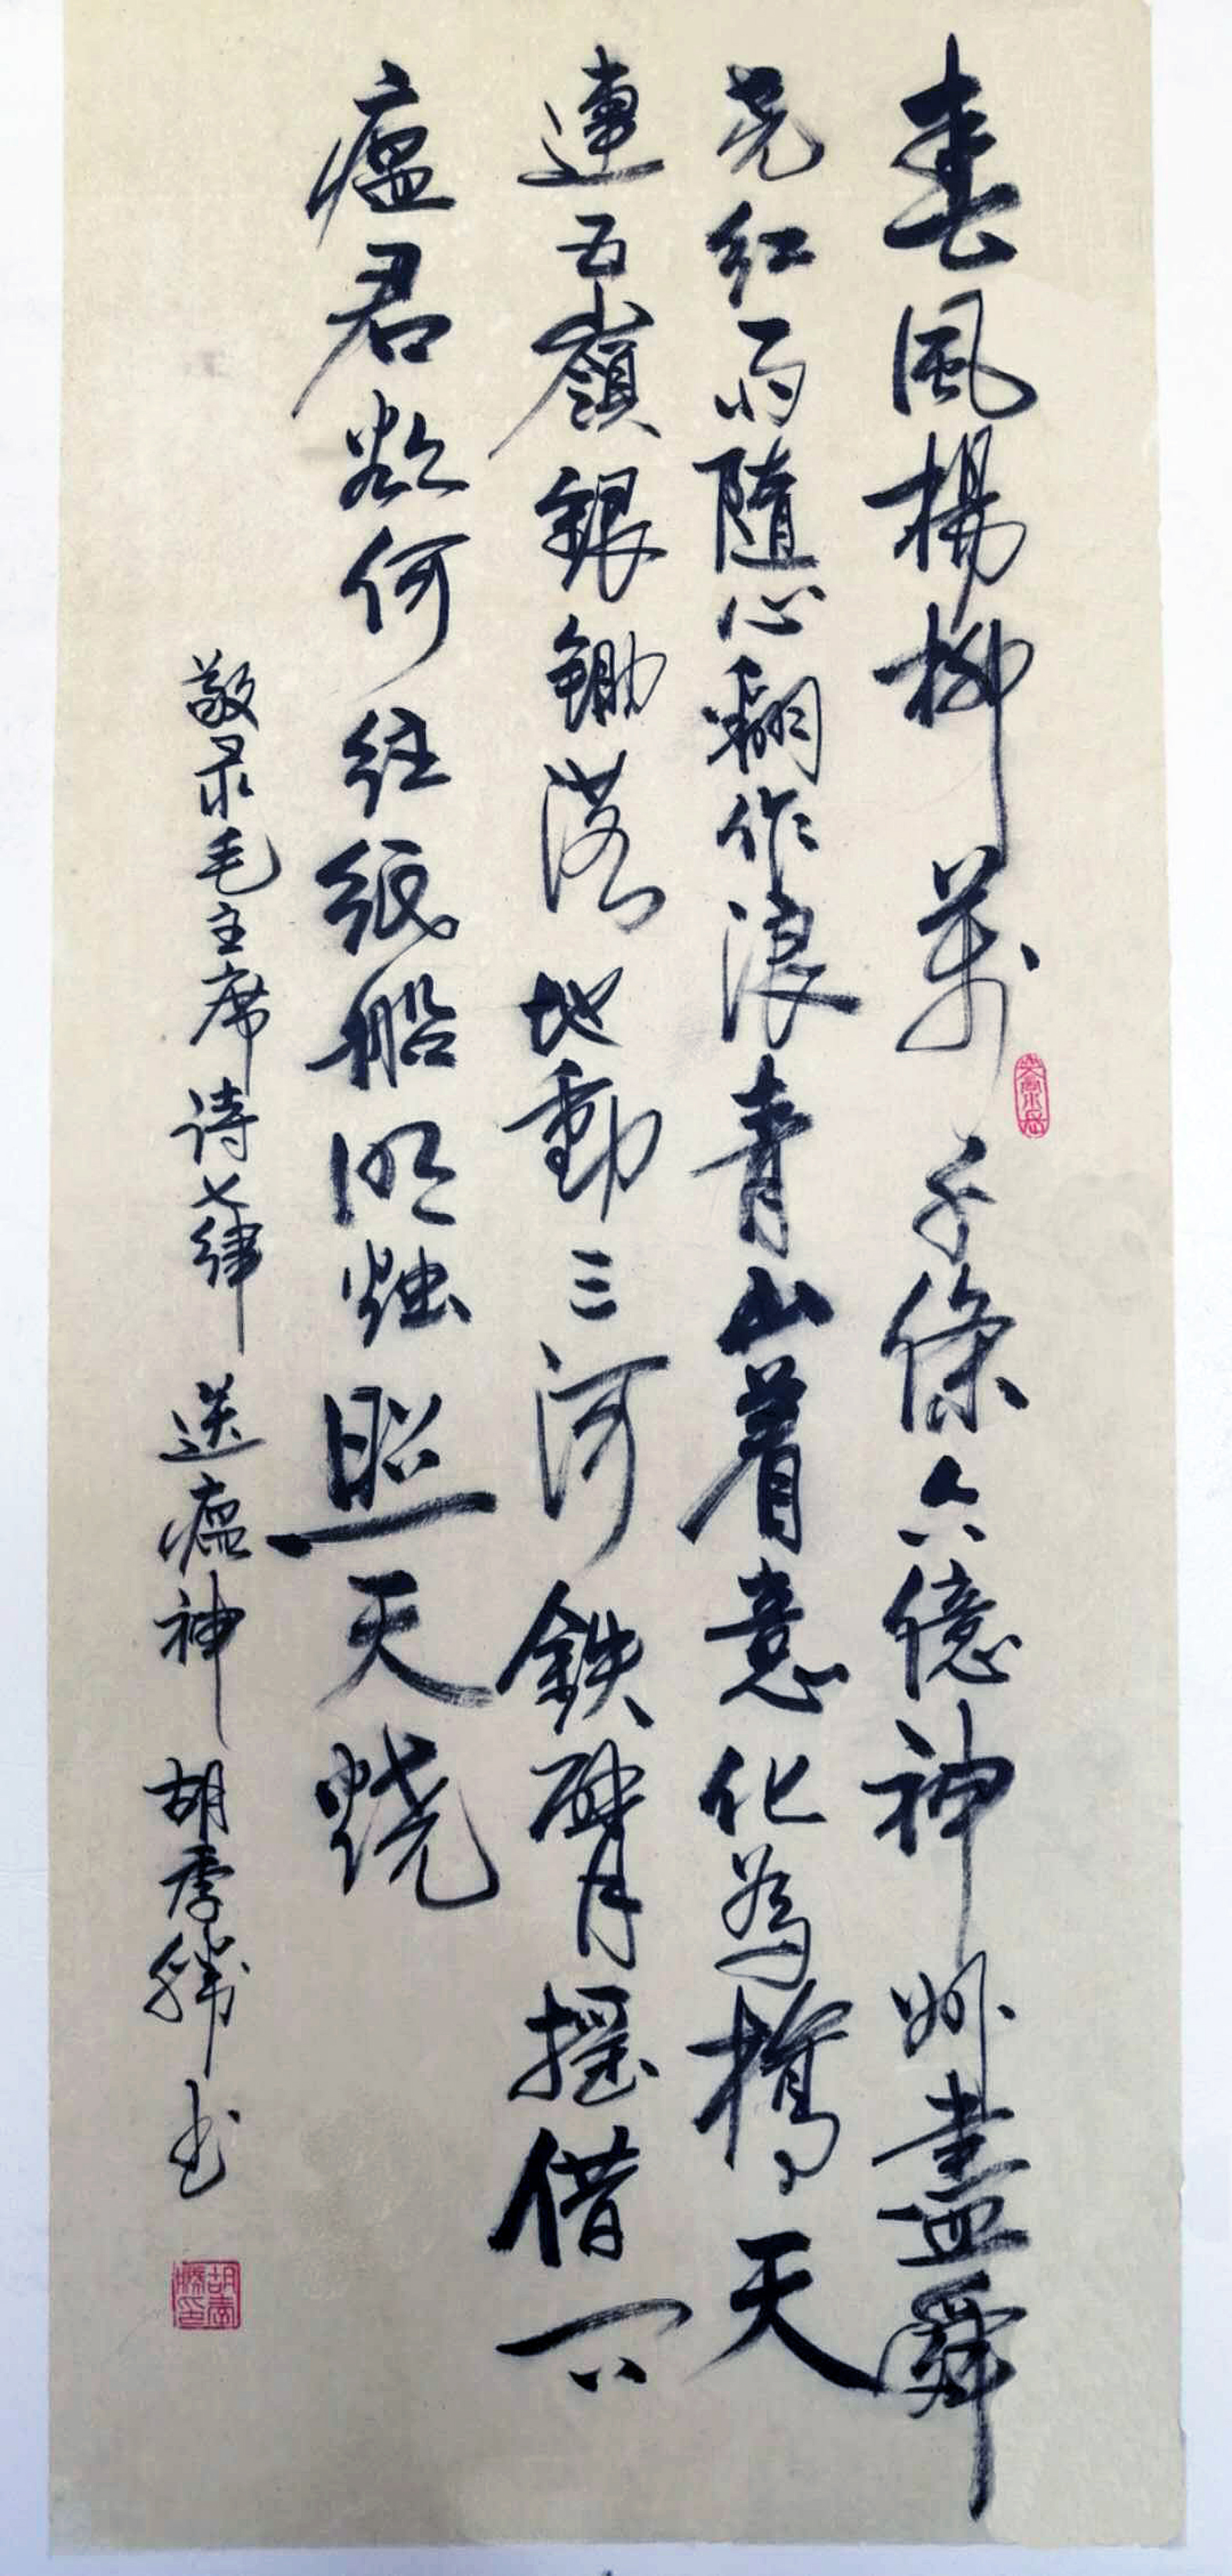 春風楊柳萬千條六億神州盡舜
尧紅雨隨心翻作浪青山着意化為橋天
連五嶺銀鋤落地動三河鉄臂摇借问
瘟君欲何往紙船明烛照天烧
敬录毛主席诗七律 送瘟神 胡季勝书
胡季勝印